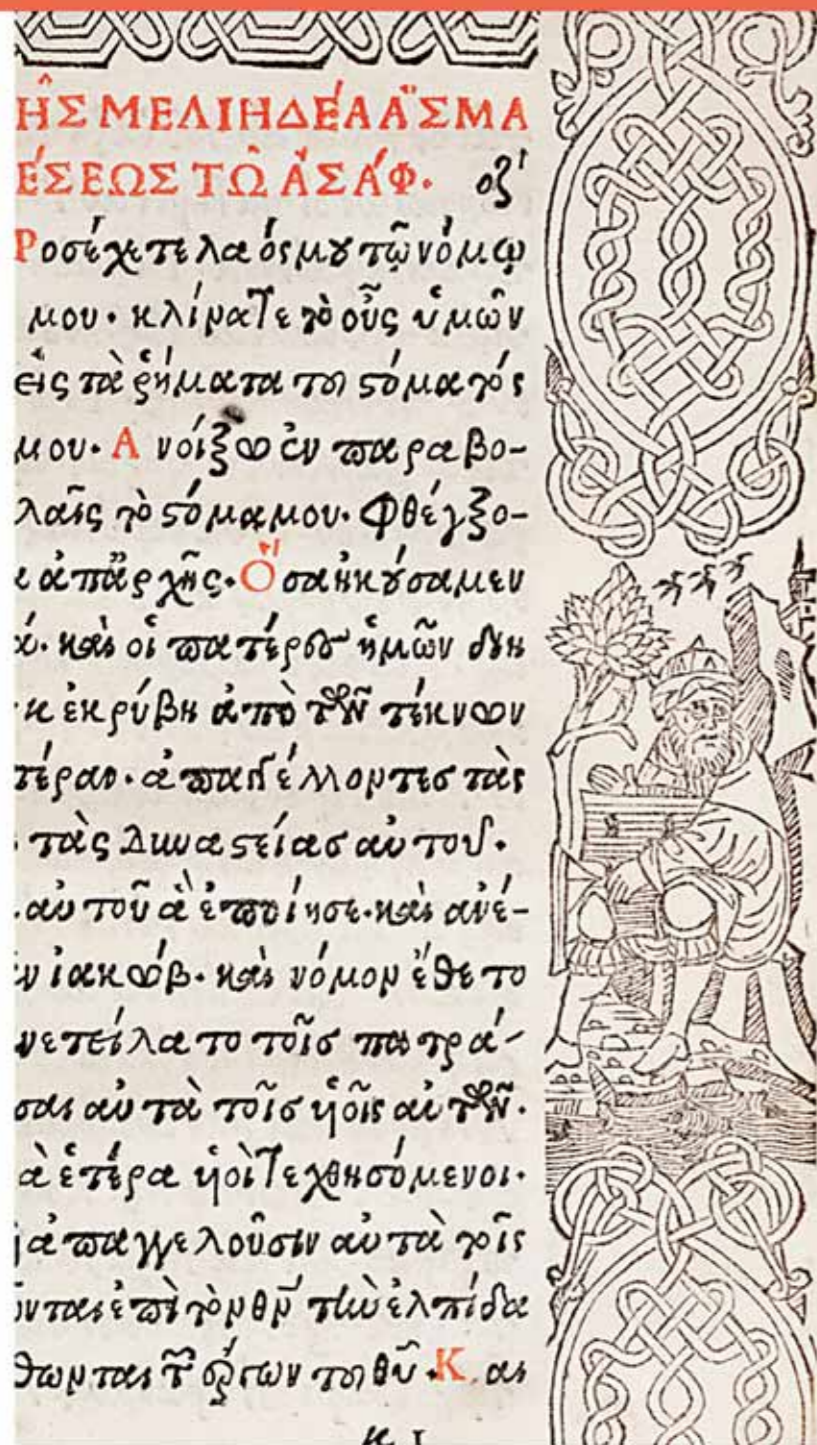 ῆΣ ΜΕΛΙΗΔΕΆ Α῎ΣΜΑ
ΈΣΕΩΣ ΤΩ͂ ἈΣΆΦ. οζʹ
Ροσέχετε λαόσ μȣ τῷ νόμῳ
μου. κλίνατε τὸ οὖς ὑμῶν
εἰς τὰ ῥήματα τοῦ ϛόματός
μου. Ανοίξω ἐν παραβο-
λαῖς τὸ ϛόμα μου. Φθέγξο-
ι ἀπ᾽ ἀρχῆς. Ὅσα ἠκȣ́σαμεν
ά. καὶ οἱ πατέρες ἡμῶν διη
κ ἐκρύβη ἀπὸ τῶν τέκνων
τέραν. ἀπαγγέλλοντεσ τὰς
τὰς Δυναϛείασ αὐτοῦ.
αὐτοῦ ἃ ἐποίησε. καὶ ἀνέ-
ν ἰακώβ. καὶ νόμον ἔθετο
νετείλατο τοῖσ πατρά-
σαι αὐτὰ τοῖσ ὑοῖς αὐτῶν.
ὰ ἑτέρα ὑοὶ τεχθησόμενοι.
ἀπαγγελοῦσιν αὐτὰ τοῖς
ῶνται ἐπὶ τὸν θν̄ τὴν ἐλπίδα
θωνται τῶν ἔργων τοῦ θῦ. Και
κ ι